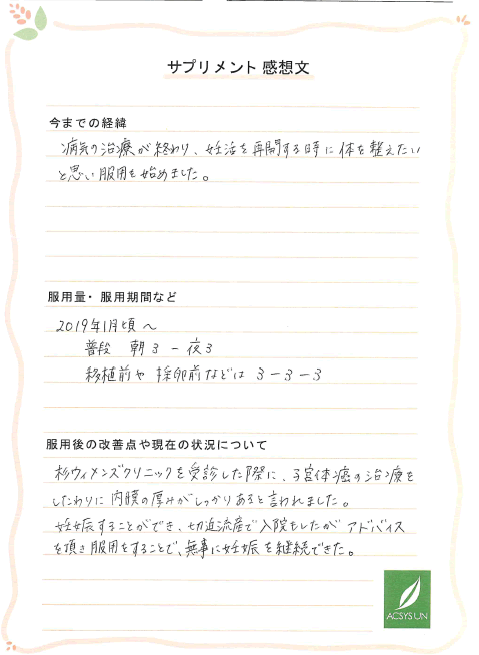 サプリメント 感想文
今までの経緯
病気の治療が終わり、妊活を再開する時に体を整えたい
と思い服用を始めました。
服用量・服用期間など
2019年1月頃〜
普段 朝3 - 夜3
移植前や採卵前などは 3-3-3
服用後の改善点や現在の状況について
杉ウィメンズクリニックを受診した際に、子宮体癌の治療を
したわりに内膜の厚みがしっかりあると言われました。
妊娠することができ、切迫流産で入院もしたがアドバイス
を頂き服用をすることで、無事に妊娠を継続できた。
ACSYSUN